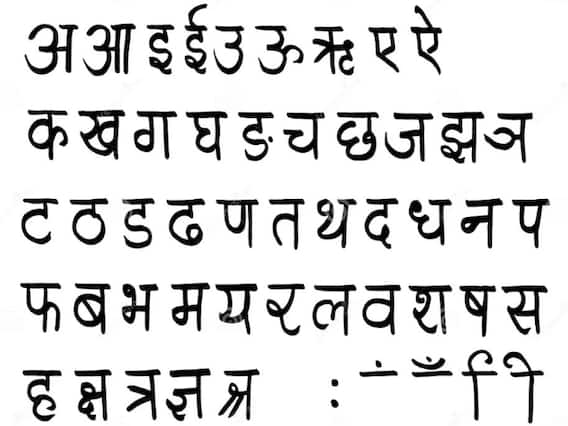 अ आ इ ई उ ऊ ऋ ए ऐ
क ख ग घ ङ च छ ज झ ञ
ट ठ ड ढ ण त थ द ध न प
फ ब भ म य र ल व श ष स
ह क्ष त्र ज्ञ श्र : ं ँ ि ी